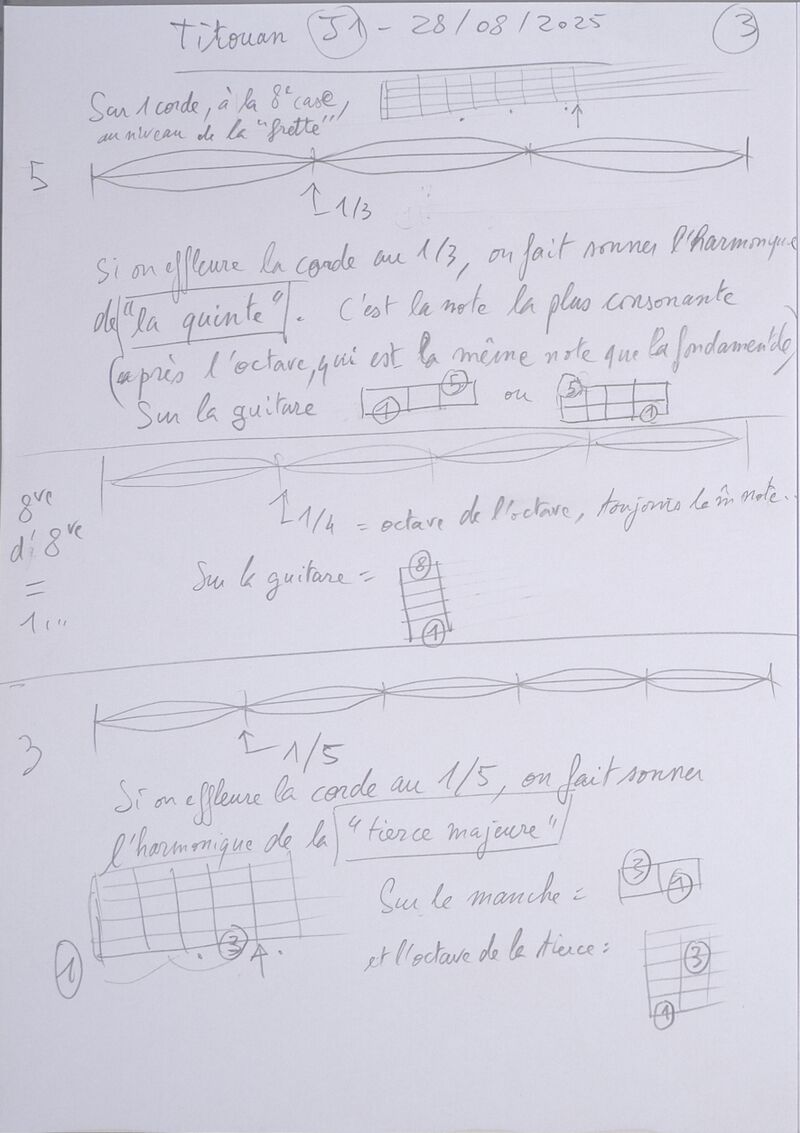 Titouan J1 - 28/08/2025 3
Sur 1 corde, à la 8e case,
au niveau de la "frette"
5
1/3
Si on effleure la corde au 1/3, on fait sonner l'harmonique
de "la quinte". C'est la note la plus consonante
(après l'octave, qui est la même note que la fondamentale)
Sur la guitare 1 5 ou 5 1
8ve
d' 8ve
=
1...
1/4 = octave de l'octave, toujours la m̂ note..
Sur la guitare = 8
1
3
1/5
Si on effleure la corde au 1/5, on fait sonner
l'harmonique de la "tierce majeure"
Sur le manche = 3 1
1 3
et l'octave de la tierce = 3
1